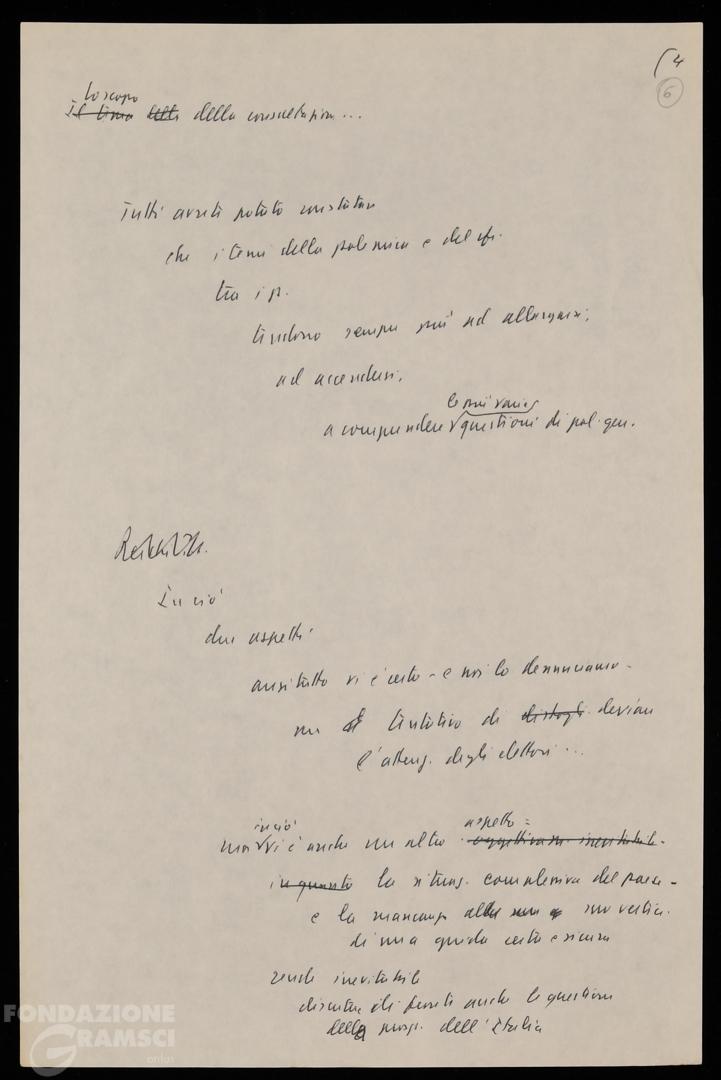 4
6
Lo scopo
Il tema della della consultazione...
Tutti avrete potuto constatare
che i temi della polemica e del
tra i p.
tendono sempre più ad allargarsi,
ad accendersi,
le più varie
a comprendere questioni di pol. gen.
In ciò
due aspetti
anzitutto vi è certo - e noi lo denunciamo -
un tentativo di distogl. deviare
l'attenz. degli elettori...
in ciò aspetto =
ma vi è anche un altro oggettivam. inevitabile.
in quanto la situaz. complessiva del paese -
e la mancanza suo vertice
di una guida certa e sicura
rende inevitabile
discutere di fronte anche le questioni
della prosp. dell'Italia
FONDAZIONE
GRAMSCI
onlus